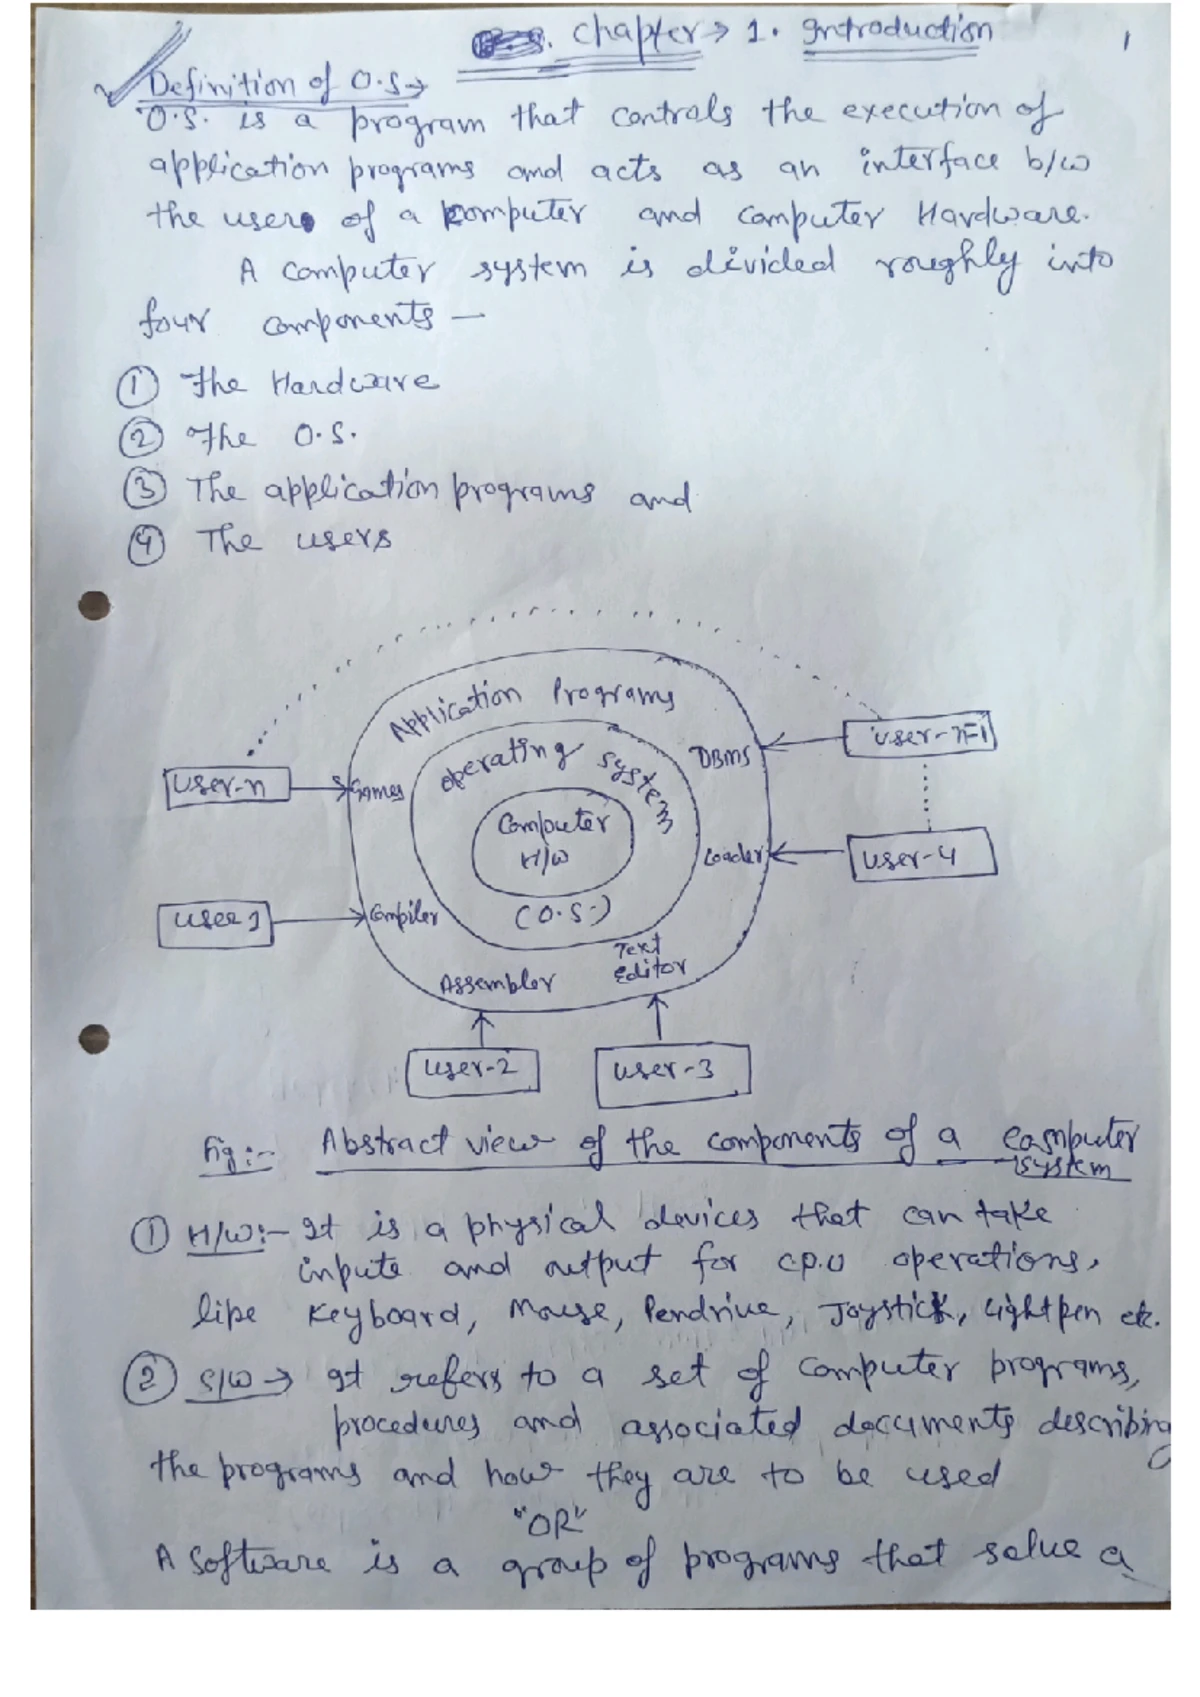 Chapter → 1. Introduction
1
Definition of O.S →
O.S. is a program that controls the execution of
application programs and acts as an interface b/w
the user of a computer and computer Hardware.
A computer system is divided roughly into
four components —
① The Hardware
② The O.S.
③ The application programs and
④ The users
Application Programs
Operating system
Computer
H/W
(O.S.)
DBMS
user-n-1
user-n
Games
Loader
user-4
user 1
Compiler
Assembler
Text
Editor
user-2
user-3
Fig:- Abstract view of the components of a computer
system
① H/W:- It is a physical devices that can take
inpute and output for C.P.U operations,
like Keyboard, Mouse, Pendrive, Joystick, Lightpen etc.
② S/W → It refers to a set of computer programs,
procedures and associated documents describing
the programs and how they are to be used
"OR"
A Software is a group of programs that solve a